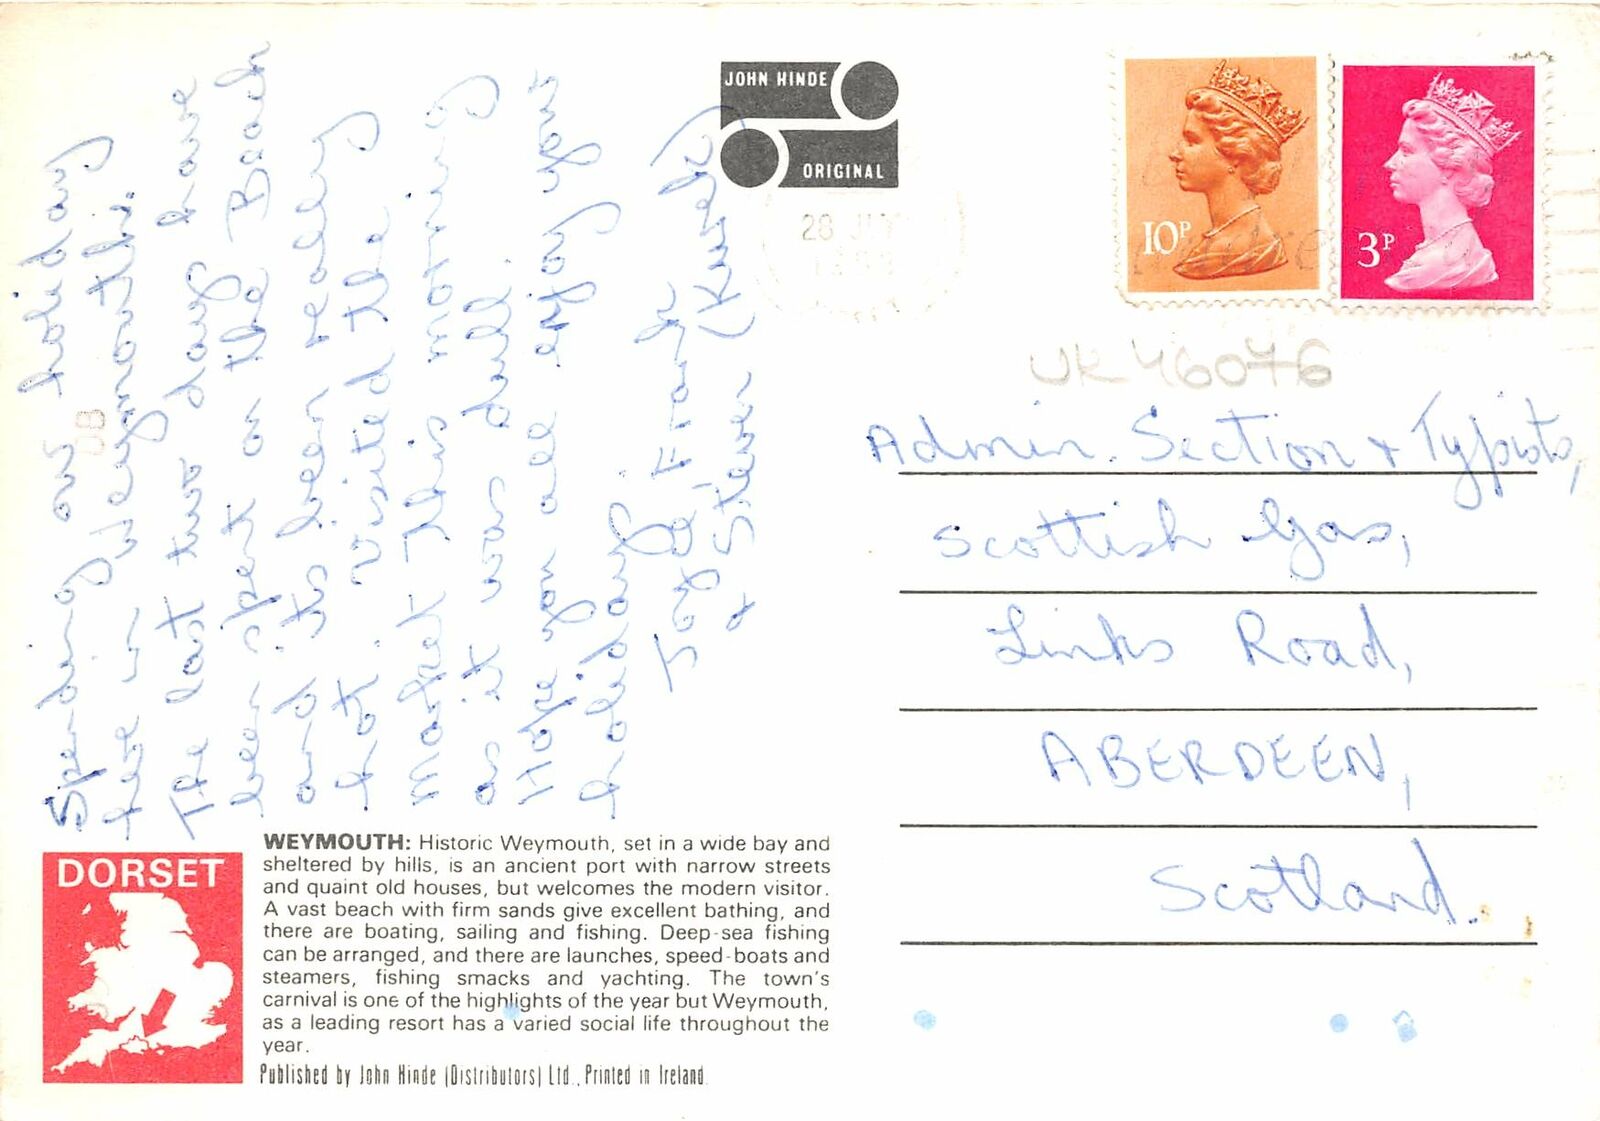 Spending our holiday
here in Weymouth.
The last two days have
been spent on the Beach
and its been really
hot. Visited the
market this morning
as it was dull.
Hope you all enjoy your
holidays
& Frank
& Steven
JOHN HINDE
ORIGINAL
28 JU
10P
3P
UK46076
Admin. Section & Typists,
Scottish Gas,
Links Road,
ABERDEEN,
Scotland.
DORSET
WEYMOUTH: Historic Weymouth, set in a wide bay and
sheltered by hills, is an ancient port with narrow streets
and quaint old houses, but welcomes the modern visitor.
A vast beach with firm sands give excellent bathing, and
there are boating, sailing and fishing. Deep-sea fishing
can be arranged, and there are launches, speed-boats and
steamers, fishing smacks and yachting. The town's
carnival is one of the highlights of the year but Weymouth,
as a leading resort has a varied social life throughout the
year.
Published by John Hinde (Distributors) Ltd., Printed in Ireland.